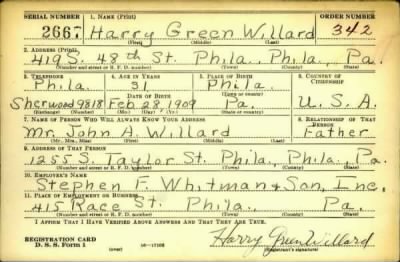 SERIAL NUMBER 1. NAME (Print) ORDER NUMBER
2667 Harry Green Willard 342
(First) (Middle) (Last)
2. ADDRESS (Print)
419 S. 48th St. Phila., Phila., Pa.
(Number and street or R. F. D. number) (Town) (County) (State)
3. TELEPHONE 4. AGE IN YEARS 5. PLACE OF BIRTH 6. COUNTRY OF CITIZENSHIP
Phila. 31 Phila.
DATE OF BIRTH (Town or county)
Sherwood 9818 Feb 28, 1909 Pa. U.S.A.
(Exchange) (Number) (Mo.) (Day) (Yr.) (State or country)
7. NAME OF PERSON WHO WILL ALWAYS KNOW YOUR ADDRESS 8. RELATIONSHIP OF THAT PERSON
Mr. John A. Willard Father
(Mr., Mrs., Miss) (First) (Middle) (Last)
9. ADDRESS OF THAT PERSON
1255 S. Taylor St. Phila., Phila., Pa.
(Number and street or R. F. D. number) (Town) (County) (State)
10. EMPLOYER'S NAME
Stephen F. Whitman & Son, Inc.
11. PLACE OF EMPLOYMENT OR BUSINESS
415 Race St. Phila. Pa.
(Number and street or R. F. D. number) (Town) (County) (State)
I AFFIRM THAT I HAVE VERIFIED ABOVE ANSWERS AND THAT THEY ARE TRUE.
REGISTRATION CARD
D. S. S. Form 1 (over) Harry Green Willard
(Registrant's signature)